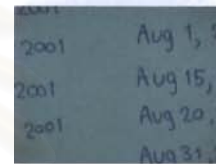 2001
2001 Aug 1,
2001 Aug 15,
2001 Aug 20,
Aug 31